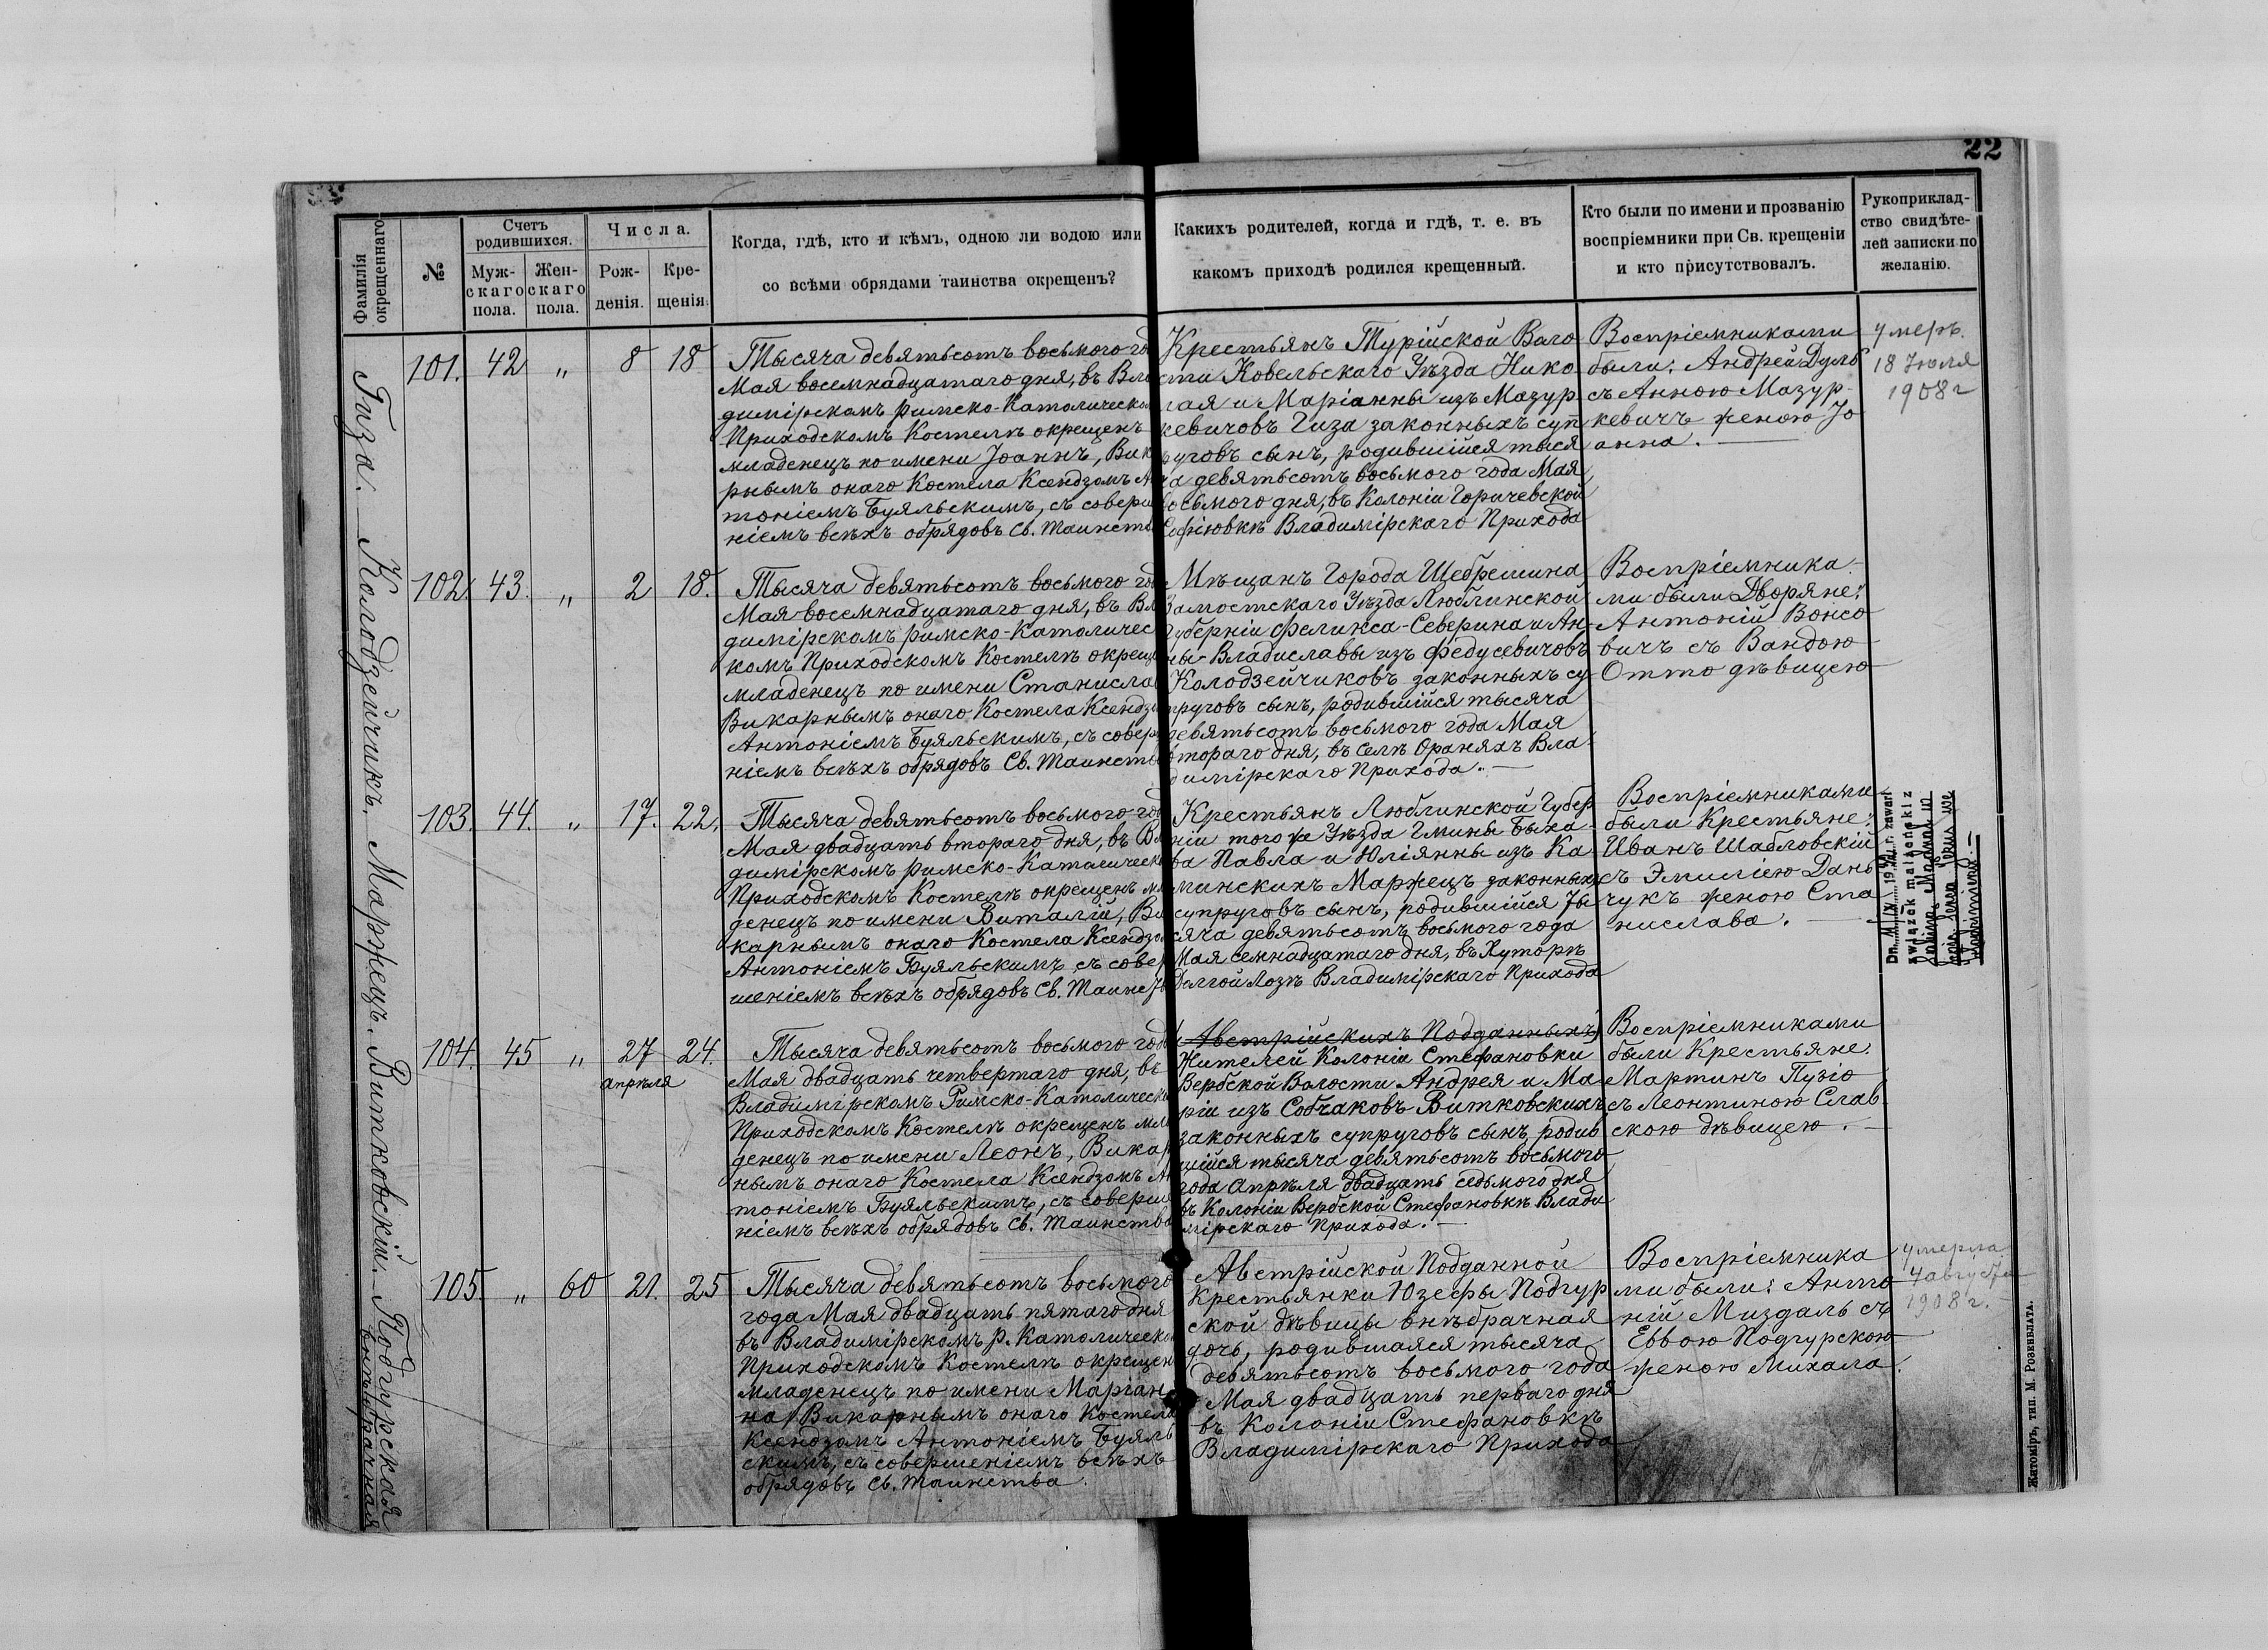 22
Фамилія окрещеннаго
№
Счетъ родившихся.
Муж-скаго пола.
Жен-скаго пола.
Числа.
Рож-денія.
Кре-щенія.
Когда, гдѣ, кто и кѣмъ, одною ли водою или
со всѣми обрядами таинства окрещенъ?
Какихъ родителей, когда и гдѣ, т. е. въ
какомъ приходѣ родился крещенный.
Кто были по имени и прозванію
воспріемники при Св. крещеніи
и кто присутствовалъ.
Рукоприклад-
ство свидѣте-
лей записки по
желанію.
Гиза.
101. 42 " 8 18
Тысяча девятьсотъ восьмого год
Мая восемнадцатаго дня, въ Вла
димірскомъ римско-Католическом
Приходскомъ Костелѣ окрещенъ
младенецъ по имени Іоаннъ, Вика
рнымъ онаго Костела Ксендзомъ Ан
тоніемъ Буяльскимъ, съ соверше
ніемъ всѣхъ обрядовъ Св. Таинств
Крестьянъ Турійской Воло
сти Ковельскаго Уѣзда Нико
лая и Маріанны изъ Мазур
кевичовъ Гиза законныхъ суп
руговъ сынъ, родившійся тыся
ча девятьсотъ восьмого года Мая
восьмого дня, въ Колоніи Горичевской
Софіювкѣ Владимірскаго Прихода
Воспріемниками
были: Андрей Дуль
съ Анною Мазур-
кевичъ женою Іо
анна.
умеръ.
18 Іюля
1908 г
Колодзейчикъ.
102. 43. " 2 18.
Тысяча девятьсотъ восьмого год
Мая восемнадцатаго дня, въ Вла
димірскомъ римско-Католичес
комъ Приходскомъ Костелѣ окреще
младенецъ по имени Станислав
Викарнымъ онаго Костела Ксендзо
Антоніемъ Буяльскимъ, съ соверше
ніемъ всѣхъ обрядовъ Св. Таинств
Мѣщанъ Города Щебрешина
Замостскаго Уѣзда Люблинской
Губерніи Феликса-Северина и Ан-
ны-Владиславы изъ Федусевичовъ
Колодзейчиковъ законныхъ су-
пруговъ сынъ, родившійся тысяча
девятьсотъ восьмого года Мая
второго дня, въ селѣ Ораняхъ Вла-
димірскаго Прихода.
Воспріемника-
ми были Дворяне:
Антоній Вонсо
вичъ съ Вандою
Отто дѣвицею
Маржецъ.
103. 44. " 17. 22.
Тысяча девятьсотъ восьмого год
Мая двадцать второго дня, въ Вла
димірскомъ римско-Католическо
Приходскомъ Костелѣ окрещенъ мла
денецъ по имени Виталій, Ви
карнымъ онаго Костела Ксендзом
Антоніемъ Буяльскимъ, съ совер
шеніемъ всѣхъ обрядовъ Св. Таинств
Крестьянъ Люблинской Губер
ніи того же Уѣзда Гмины Быха
ва Павла и Юліянны изъ Ка
минскихъ Маржецъ законныхъ
супруговъ сынъ, родившійся ты
сяча девятьсотъ восьмого года
Мая семнадцатаго дня, въ Хуторѣ
Долгой Лозѣ Владимірскаго Прихода
Воспріемниками
были Крестьяне:
Иванъ Шабловскій
съ Эмиліею Дань
чукъ женою Ста
нислава.
r. zawarł
związek małżeński z
Витковскій.
104. 45 " 27 апрѣля 24.
Тысяча девятьсотъ восьмого года
Мая двадцать четвертаго дня, въ
Владимірскомъ Римско-Католическо
Приходскомъ Костелѣ окрещенъ мла
денецъ по имени Леонъ, Викар
нымъ онаго Костела Ксендзомъ Ан
тоніемъ Буяльскимъ, съ соверше
ніемъ всѣхъ обрядовъ Св. Таинства
(Австрійскихъ Подданныхъ)
Жителей Колоніи Стефановки
Вербской Волости Андрея и Ма
ріи изъ Собчаковъ Витковскихъ
законныхъ супруговъ сынъ, родив
шійся тысяча девятьсотъ восьмого
года Апрѣля двадцать седьмого дня
въ Колоніи Вербской Стефановкѣ Влади
мірскаго Прихода.
Воспріемниками
были Крестьяне:
Мартинъ Пузіо
съ Леонтиною Слав
скою дѣвицею.
Подгурская
внѣбрачная
105. " 60 21. 25
Тысяча девятьсотъ восьмого
года Мая двадцать пятаго дня
въ Владимірскомъ р. Католическо
Приходскомъ Костелѣ окрещен
младенецъ по имени Маріан
на, Викарнымъ онаго Костела
Ксендзомъ Антоніемъ Буяль
скимъ, съ совершеніемъ всѣхъ
обрядовъ Св. Таинства.
Австрійской Подданной
Крестьянки Юзефы Подгур
ской дѣвицы внѣбрачная
дочь, родившаяся тысяча
девятьсотъ восьмого года
Мая двадцать перваго дня
въ Колоніи Стефановкѣ
Владимірскаго Прихода
Воспріемника
ми были: Анто
ній Миздаль съ
Еввою Подгурскою
женою Михала.
умерла
4 августа
1908 г.
Житоміръ, тип. М. Розенблата.